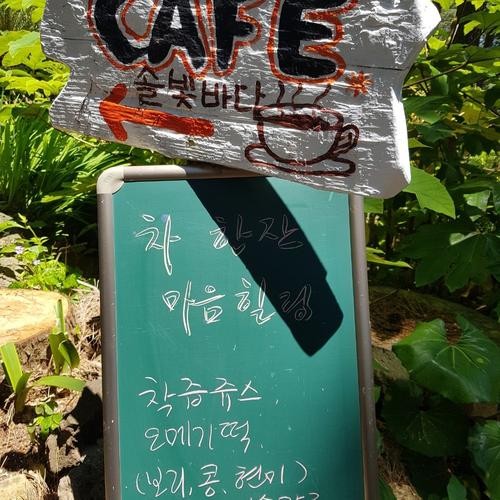 CAFE
솔빛바다
차 한잔
마음힐링
착즙쥬스
오메기떡
(보리,콩,현미)